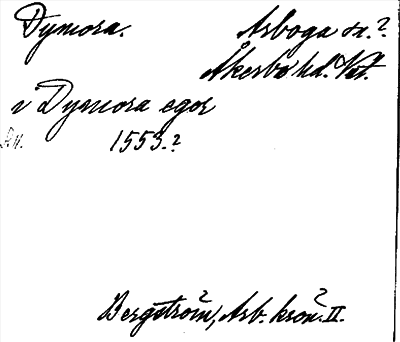 Dymora. Arboga sn.?
Åkerbo hd. Vstm.
v Dymora egor
1553.?
Bergström, Arb. krön. II.